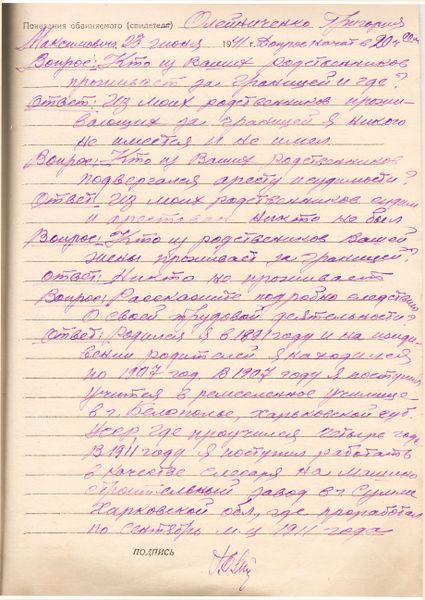 Показания обвиняемого (свидетеля) Олейниченко Григория
Максимовича 23 июня 1941 г. Допрос начат в 20 ч 00 м
Вопрос: Кто из Ваших родственников
проживает за границей и где?
Ответ: Из моих родственников прожи-
вающих за границей я никого
не имеется и не имел.
Вопрос: Кто из Ваших родственников
подвергался аресту и судимости?
Ответ: Из моих родственников судим
и арестован никто не был
Вопрос: Кто из родственников Вашей
жены проживает за границей?
Ответ: Никто не проживает
Вопрос: Расскажите подробно следствию
О своей трудовой деятельности?
Ответ: Родился я в году и на ижди-
вении родителей я находился
по 1907 год. В 1907 году я поступил
учится в ремесленное училище
в г. Белополье, Харьковской губ.
УССР, где проучился четыре года
В 1911 году я поступил работать
в качестве слесаря на машино
строительный завод в г Сумы
Харковской обл, где проработал
по сентябрь м-ц 1911 года
ПОДПИСЬ